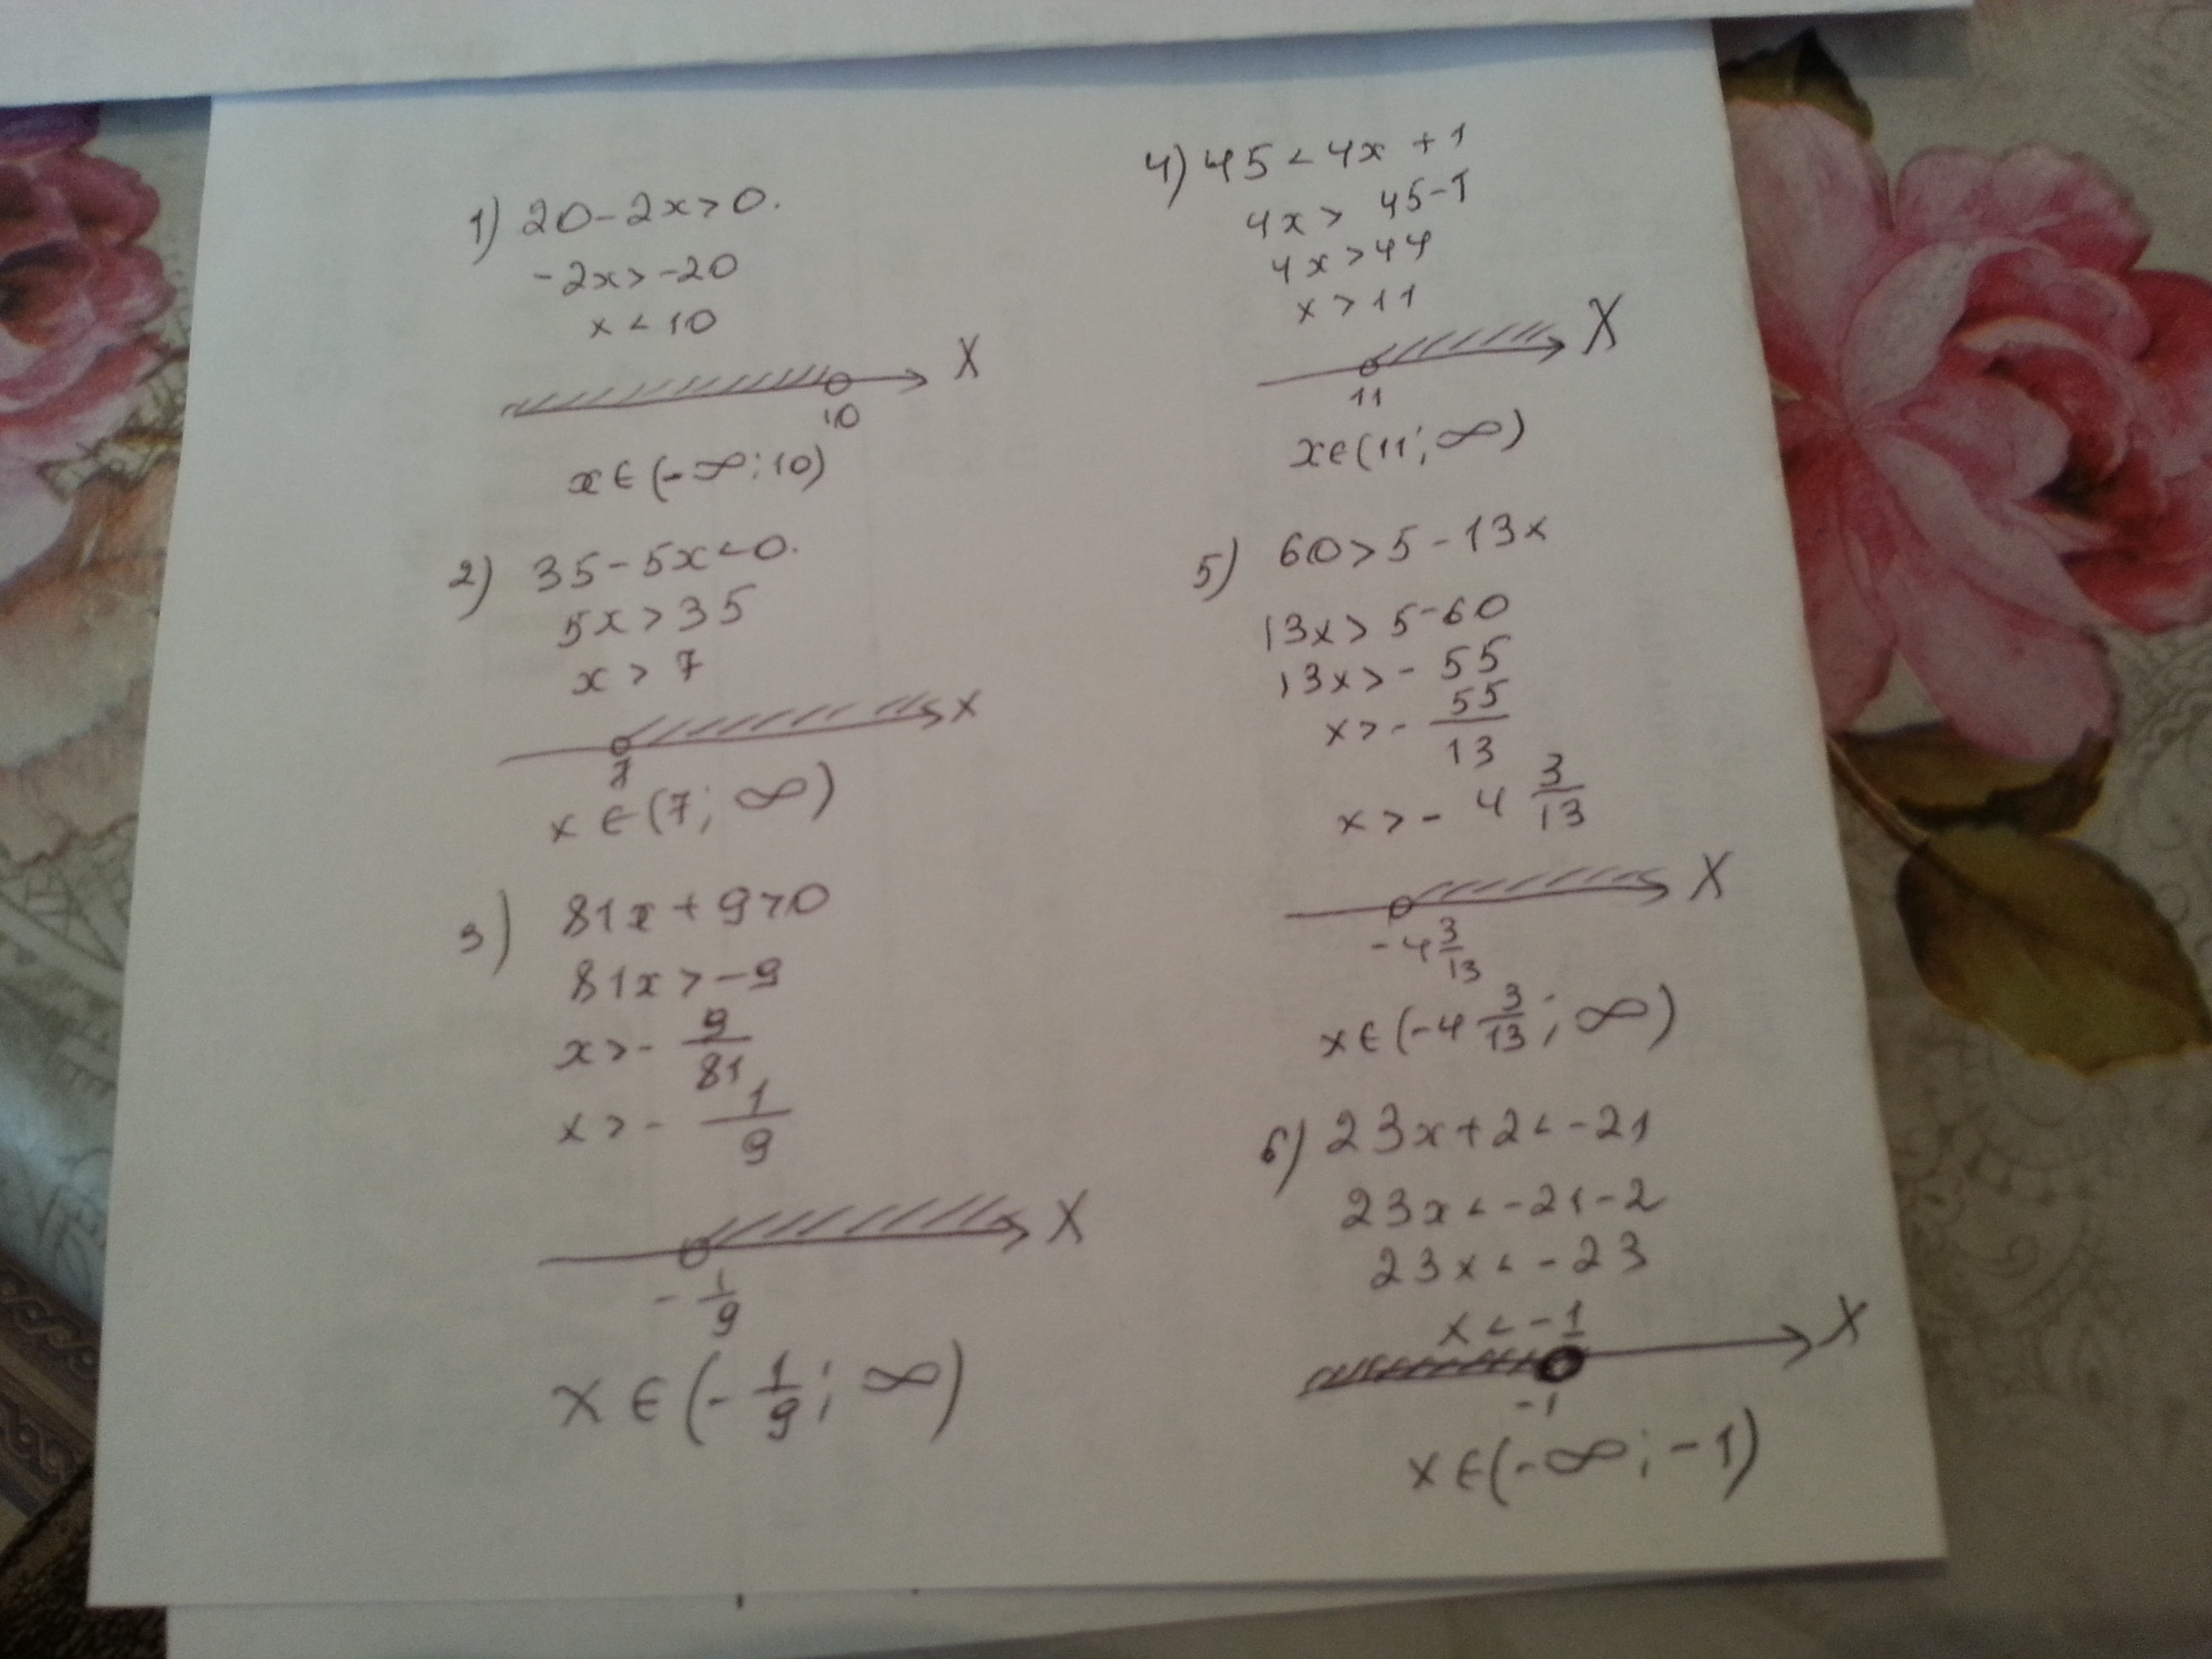 1) 20-2x>0.
-2x>-20
x<10
X
10
x∈(-∞;10)
2) 35-5x<0.
5x>35
x>7
x
7
x∈(7;∞)
3) 81x+9>0
81x>-9
x>-9/81
x>-1/9
X
-1/9
x∈(-1/9;∞)
4) 45<4x+1
4x>45-1
4x>44
x>11
X
11
x∈(11;∞)
5) 60>5-13x
13x>5-60
13x>-55
x>-55/13
x>-4 3/13
X
-4 3/13
x∈(-4 3/13;∞)
6) 23x+2<-21
23x<-21-2
23x<-23
x<-1
X
-1
x∈(-∞;-1)